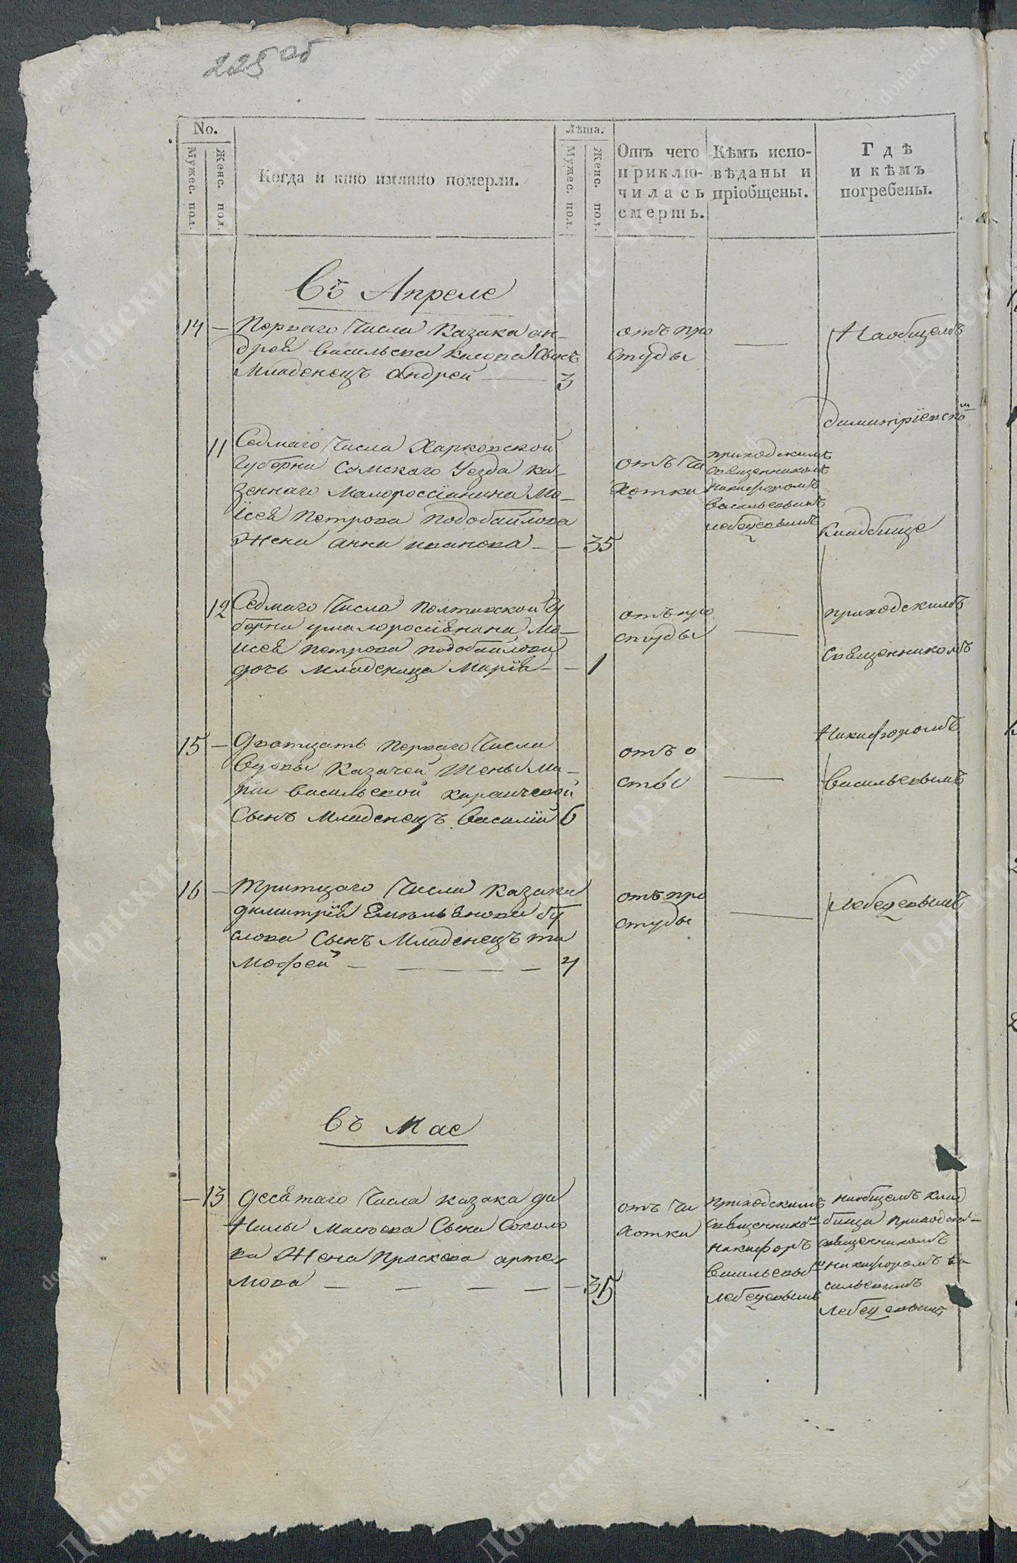 225 об
No.
Мужес. пол.
Женс. пол.
Когда и кто имянно померли.
Лѣта.
Мужес. пол.
Женс. пол.
Отъ чего приклю- чилась смерть.
Кѣмъ испо- вѣданы и пріобщены.
Гдѣ и кѣмъ погребены.
Въ Апреле
14 — Перваго Числа Казака ан-
дрея васильева сынъ
Младенецъ андрей — 3
отъ про
студы
—
Наобщемъ
димитріевском
11 Седмаго Числа Харковской
Губерни Сумскаго Уезда ка-
зеннаго Малороссіанина Мо-
исея Петрова Подобайлова
Жена анна иванова — — 35
отъ Ча
хотки
приходскимъ
священникомъ
Никифоромъ
васильевымъ
лебедевымъ
Кладбище
12 Седмаго Числа Полтавской Гу
берни малоросіянина Мо-
исея Петрова подобайлова
дочь младеница Марія — — 1
отъ про
студы
—
приходскимъ
Священникомъ
15 — Дватцать перваго Числа
Вдовы Казачей Жены Ма-
ріи васильевой
Сынъ Младенецъ Василій 6
отъ о
спы
—
Никифоромъ
васильевымъ
16 — тритцаго Числа казака
димитрія Емельянова бу
слова Сынъ Младенецъ ти
мофей — — — 4
отъ про
студы
—
лебедевымъ
Въ Мае
— 13 десятаго Числа казака да
нилы Сына Соколо
ва Жена Праскева арте-
мова — — — — — 35
отъ Ча
хотки
приходскимъ
священником
никифоръ
васильевы
лебедевымъ
наобщемъ клад
бища приходски-
священникомъ
никифоромъ ва
сильевымъ
лебедевымъ
донскиеархивы.рф
Донские Архивы
donarch.ru